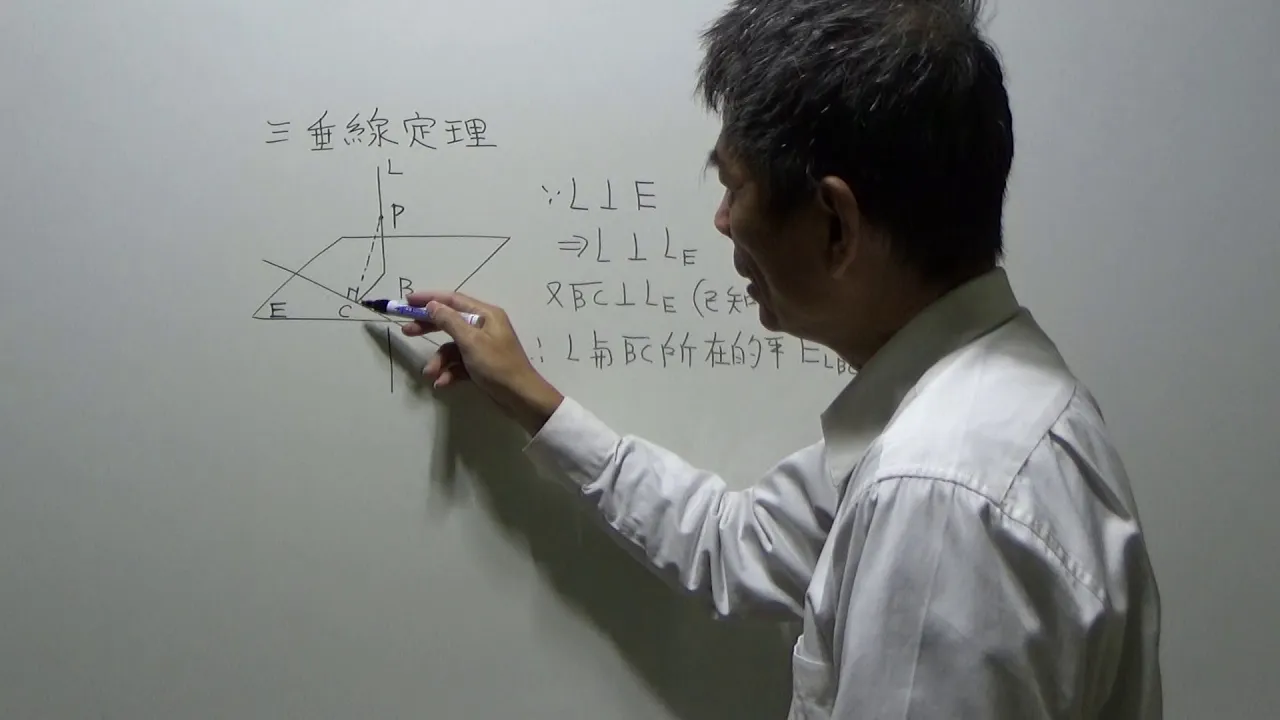 三垂線定理
L
P
B
H
C
E
∵L⊥E
⇒L⊥L_E
又BC⊥L_E (已知
∴L與BC所在的平E_LBC